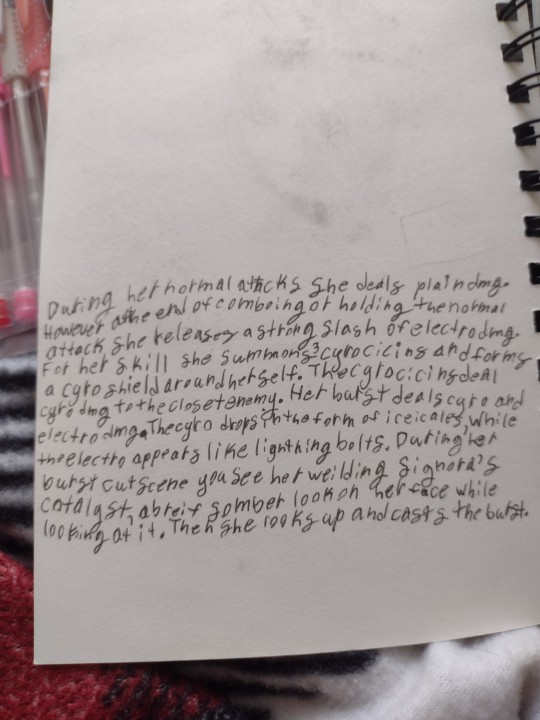 During her normal attacks she deals plain dmg.
However at the end of comboing or holding the normal
attack she releases a strong slash of electro dmg.
For her skill she summons 3 cyro cicins and forms
a cyro shield around herself. The cyro cicins deal
cyro dmg to the closet enemy. Her burst deals cyro and
electro dmg. The cyro drops in the form of iceicales, while
the electro appears like lighthing bolts. During her
burst cutscene you see her weilding Signora's
catalyst, a breif somber look on her face while
looking at it. Then she looks up and casts the burst.